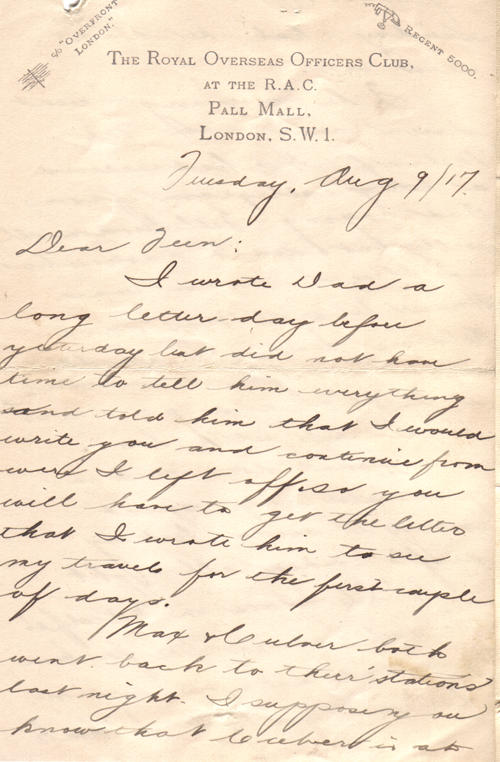 c/o "OVERFRONT
LONDON."
REGENT 5000.
THE ROYAL OVERSEAS OFFICERS CLUB,
AT THE R.A.C.
PALL MALL,
LONDON, S.W.1.
Tuesday, Aug 9/17.
Dear Teen:
I wrote Dad a
long letter day before
yesterday but did not have
time to tell him everything
and told him that I would
write you and continue from
were I left off, so you
will have to get the letter
that I wrote him to see
my travels for the first couple
of days.
Max & Culver both
went back to their stations
last night. I suppose you
know that Culver is at